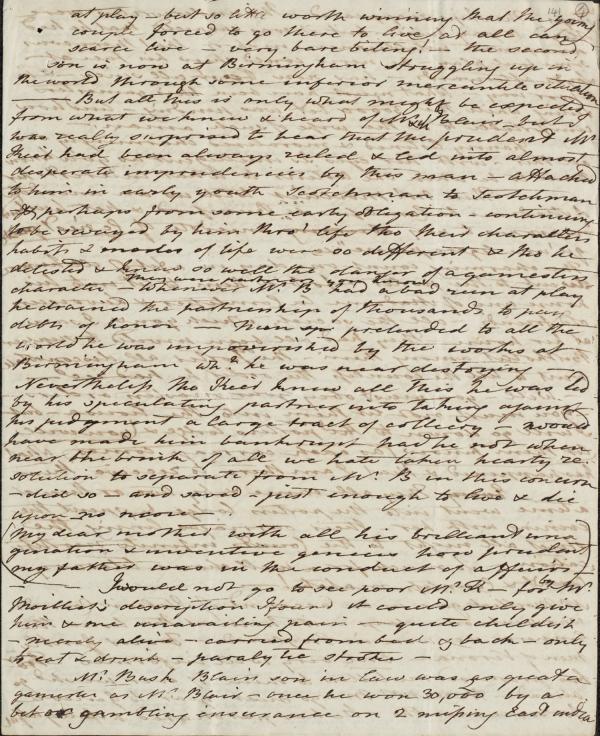 141
at play – but so little worth winning that the young
couple forced to go there to live, as all can
scarce live – very bare biting! – the second
son is now at Birmingham struggling up in
the world through some inferior mercantile situation
– But all this is only what might be expected
from what we knew & heard of Mr & Mrs Blair – but I
was really surprised to hear that the prudent Mr
Keir had been always ruled & led into almost
desperate imprudencies by this man – attached
to him in early youth Scotchman to Scotchman
& perhaps from some early obligation – continuing
to be swayed by him thro' life tho their characters
habits & modes of life were so different & tho he
detested & knew so well the danger of a gamesters
character – Whenever Mr B had a bad run at play
he drained the partnership of thousands to pay
debts of honor – Then pretended to all the
world he was impoverished by the works at
Birmingham whh he was near destroying –
Nevertheless tho Keir knew all this he was led
by his speculating partner into taking against
his judgment a large tract of colliery – would
have made him bankrupt had he not when
near the brink of all we hate taken hearty re-
solution to separate from Mr B in this concern
– did so – and saved – just enough to live & die
upon – no more –
(My dear mother with all his brilliant ima
gination & inventive genius how prudent
my father was in the conduct of affairs)
– I would not go to see poor Mr K – for by Mr
Moilliet's description I found it could only give
him & me unavailing pain – quite childish
– nearly alive – carried from bed & back – only
to eat & drink – paralytic stroke –
Mr Bush Blair son in law was as great a
gamester as Mr Blair – once he won 30,000 by a
bet or gambling insurance on 2 missing East India